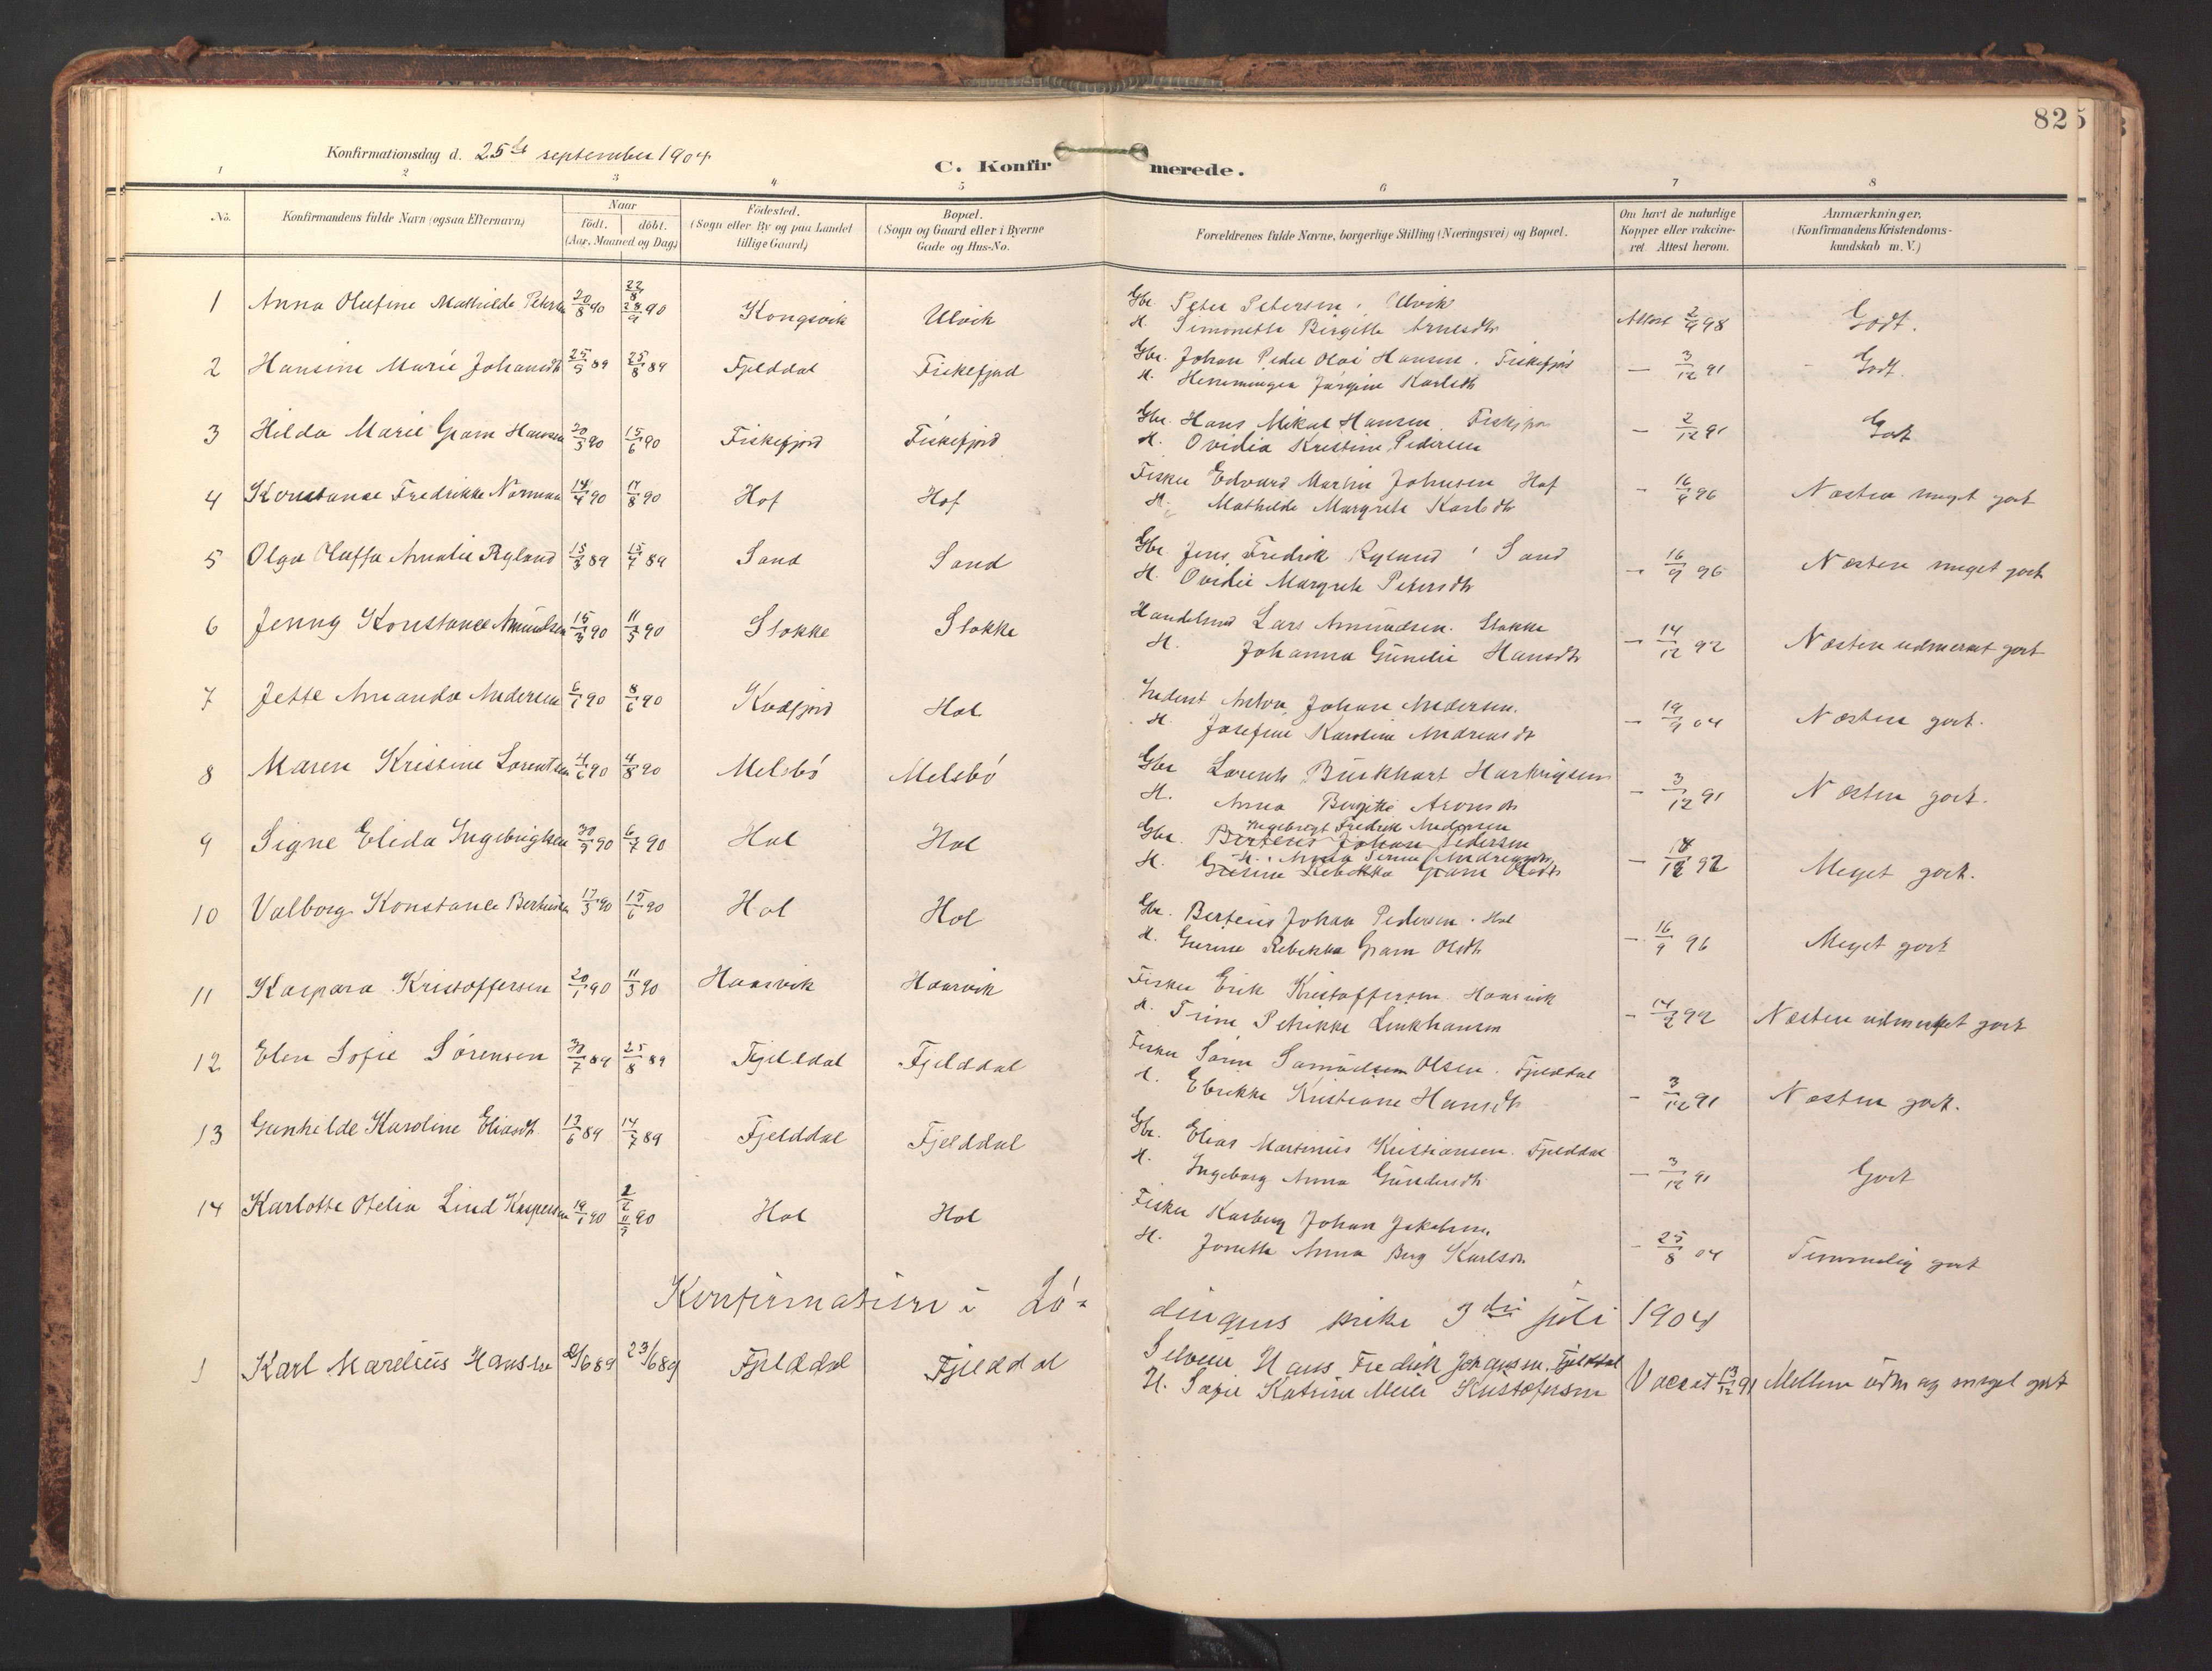 825
Konfirmationsdag d. 25de september 1904
C. Konfirmerede.
1 2 3 4 5 6 7 8
No.
Konfirmandens fulde Navn (ogsaa Efternavn)
Naar
födt. döbt.
(Aar, Maaned og Dag)
Födested.
(Sogn eller By og paa Landet
tillige Gaard)
Bopæl.
(Sogn og Gaard eller i Byerne
Gade og Hus-No.
Forældrenes fulde Navne, borgerlige Stilling (Næringsvei) og Bopæl.
Om havt de naturlige
Kopper eller vakcine-
ret Attest herom.
Anmærkninger,
(Konfirmandens Kristendoms-
kundskab m. V.)
1 Anna Olufine Mathilde Petersen 20/8 90 22/8 28/9 90 Kongsvik Ulvik Gbr Peter Petersen, Ulvik Attest 2/9 98 Godt.
H. Simonette Birgitte Arnesdtr
2 Hansine Marie Johansdtr 25/5 89 25/8 89 Fjelddal Fiskefjord Gbr. Johan Peder Olai Hansen. Fiskefjord — 3/12 91 Godt.
H. Henningea Jørgine Karlsdtr
3 Hilda Marie Gram Hansen 20/3 90 15/6 90 Fiskefjord Fiskefjord Gbr. Hans Mikal Hansen. — 2/12 91 Godt
H. Ovidia Kristine Pedersen
4 Konstanse Fredrikke Norman 14/4 90 17/8 90 Hof Hof Fisker Edvard Martin Johnsen Hof — 16/9 96 Næsten meget godt
H. Mathilde Margrete Karlsdtr
5 Olga Oluffa Amalie Rylund 15/3 89 15/7 89 Sand Sand Gbr Jens Fredrik Rylund Sand — 16/9 96 Næsten meget godt
H. Ovidie Margrete Petersdtr
6 Jenny Konstance Amundsen 15/3 90 11/5 90 Stokke Stokke Handelsmd Lars Amundsen. Stokke — 14/12 92 Næsten udmerket godt
H. Johanna Gunelie Hansdtr
7 Jette Amanda Andersen 6/1 90 8/6 90 Kvæfjord Hol Inderst Anton Johan Andersen. — 19/9 04 Næsten godt.
H. Josefine Karoline Andreasdtr
8 Maren Kristine Lorentsen 4/6 90 4/8 90 Melsbö Melsbö Gbr Lorents Burkhart Hartvigsen — 3/12 91 Næsten godt.
H. Anna Birgitte Aronsdtr
9 Signe Elida Ingebrigtsen 30/5 90 6/7 90 Hol Hol Gbr. Ingebrigt Fredrik Andersen — 14/12 92 Meget godt.
Berteus Johan Pedersen
H. Anna Andreasdtr
H. Gurine Rebekka Gram Olsdtr
10 Valborg Konstance Berteusen 17/3 90 15/6 90 Hol Hol Gbr. Berteus Johan Pedersen. Hol — 16/9 96 Meget godt
H. Gurine Rebekka Gram Olsdtr
11 Kaspara Kristoffersen 20/1 90 11/5 90 Haarvik Haarvik Fisker Erik Kristoffersen. Haarvik — 14/2 92 Næsten udmerket godt
H. Trine Petrikke Linkhausen
12 Elen Sofie Sörensen 30/7 89 25/8 89 Fjelddal Fjelddal Fisker Sörin Samuelsen Olsen. Fjelddal — 3/12 91 Næsten godt.
H. Ebrikka Kristiane Hansdtr
13 Gunhilde Karoline Eliasdtr. 13/6 89 14/7 89 Fjelddal Fjelddal Gbr. Elias Martinus Kristiansen. Fjelddal — 3/12 91 Godt
H. Ingeborg Anna Gundersdtr
14 Karlotte Otelia Lind Kaspersen 19/1 90 2/2 11/5 90 Hol Hol Fisker Kasberg Johan Jakobsen. — 25/8 04 Temmelig godt
H. Jonette Anna Berg Karlsdtr
Konfirmation i Lödingens kirke 3die juli 1904
1 Karl Marelius Hansen 2/6 89 23/6 89 Fjelddal Fjelddal Selveier Hans Fredrik Johansen. Fjelddal Vaccat 13/12 91 Mellem udm og meget godt
H. Sofie Katrine Meier Kristofersen